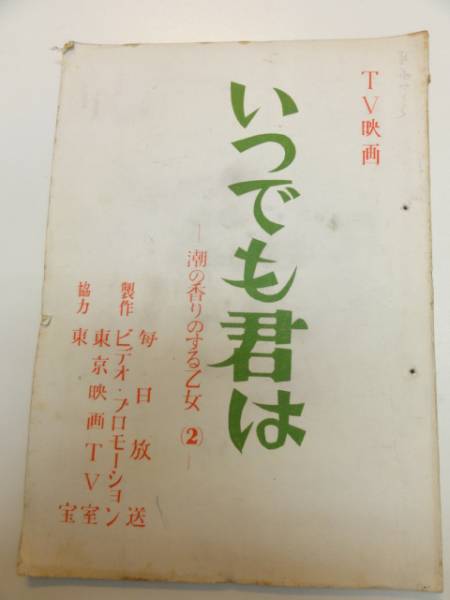 TV映画
いつでも君は
—潮の香りのする乙女(2)—
製作 毎日放送
ビデオ・プロモーション
協力 東京映画TV室
東宝